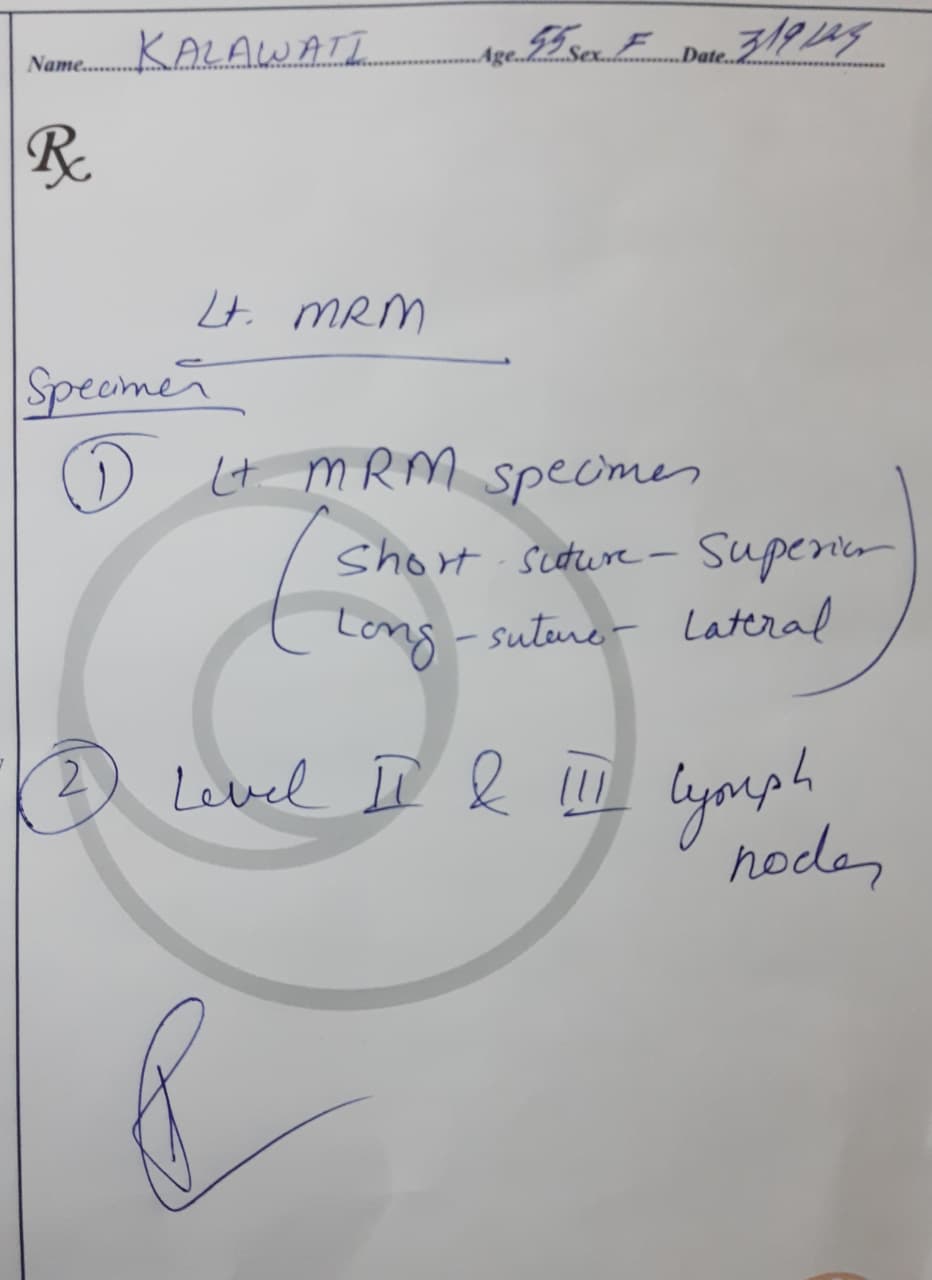 Name KALAWATI Age 55 Sex F Date 3/9/23
Rx
Lt. MRM
Specimen
1 Lt. MRM specimen
(Short suture - Superior
Long - suture - Lateral)
2 Level II & III lymph
nodes